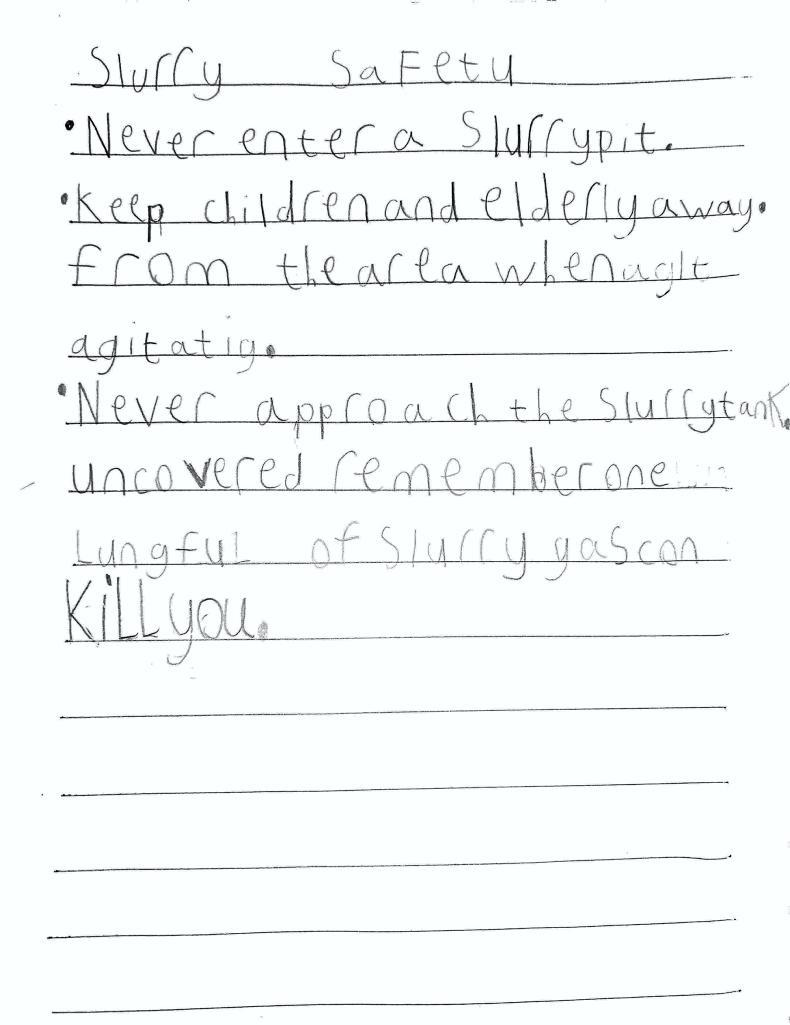 Slurry Safety
• Never enter a Slurrypit.
• Keep children and elderly away.
from the area when agit
agitatig.
• Never approach the Slurrytank.
uncovered remember one
Lungful of Slurry gas con
Kill you.